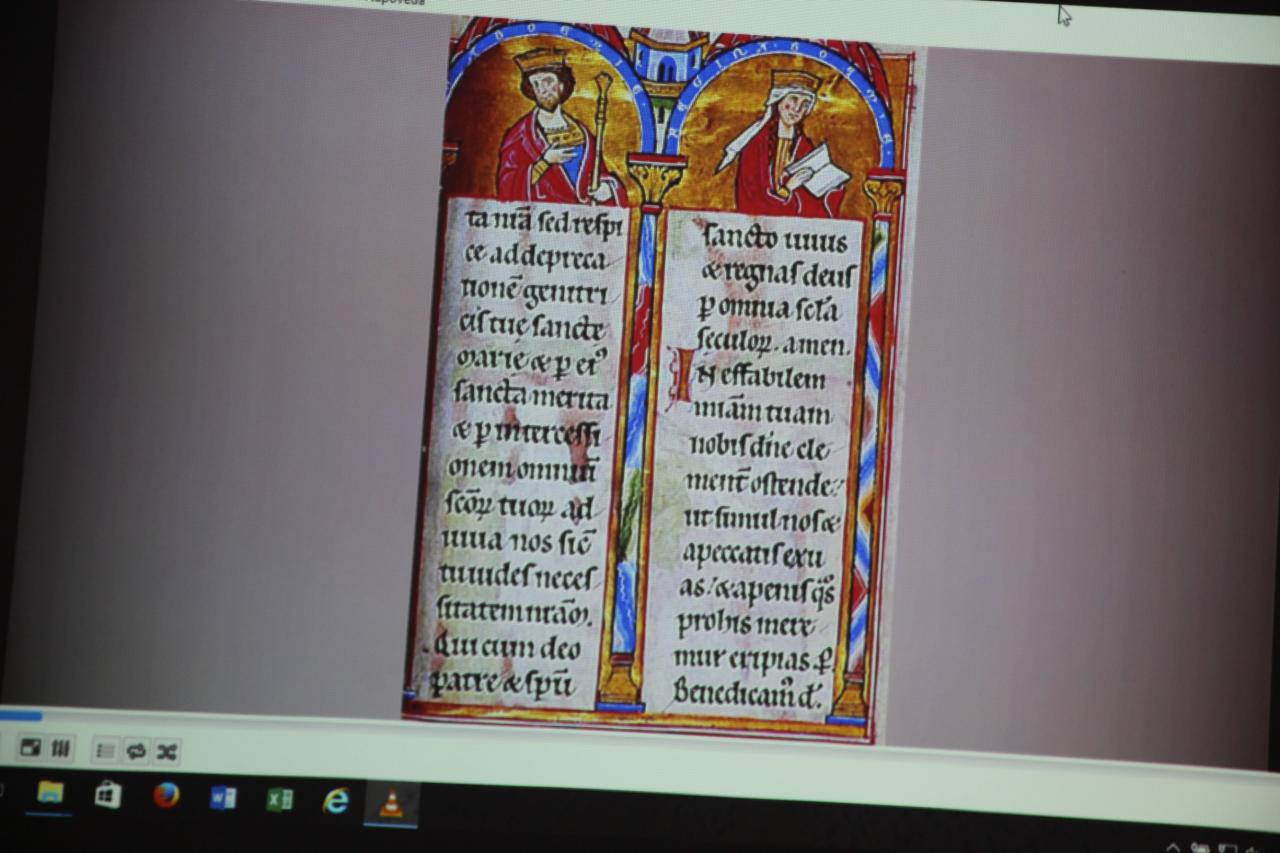 Nápověda
X BOEMIE
REGINA BOEMIE
ta n̄ıa sed respi
ce ad depreca
tionē genitri
cis tuę sancte
marie & ꝑ ei⁹
sancta merita
& ꝑ intercessi
onem omniū
scōꝝ tuoꝝ ad
iuua nos sic̄
tu uides neces
sitatem nrām.
Qui cum deo
patre & spū
sancto uiuis
& regnas deus
ꝑ omnia scła
seculoꝝ. amen.
INeffabilem
miām tuam
nobis dn̄e cle
ment̄ ostende:
ut simul nos &
a peccatis exu
as / & a penis q̄s
pro his mere
mur eripias. ꝑ.
Benedicam⁹ d̄.